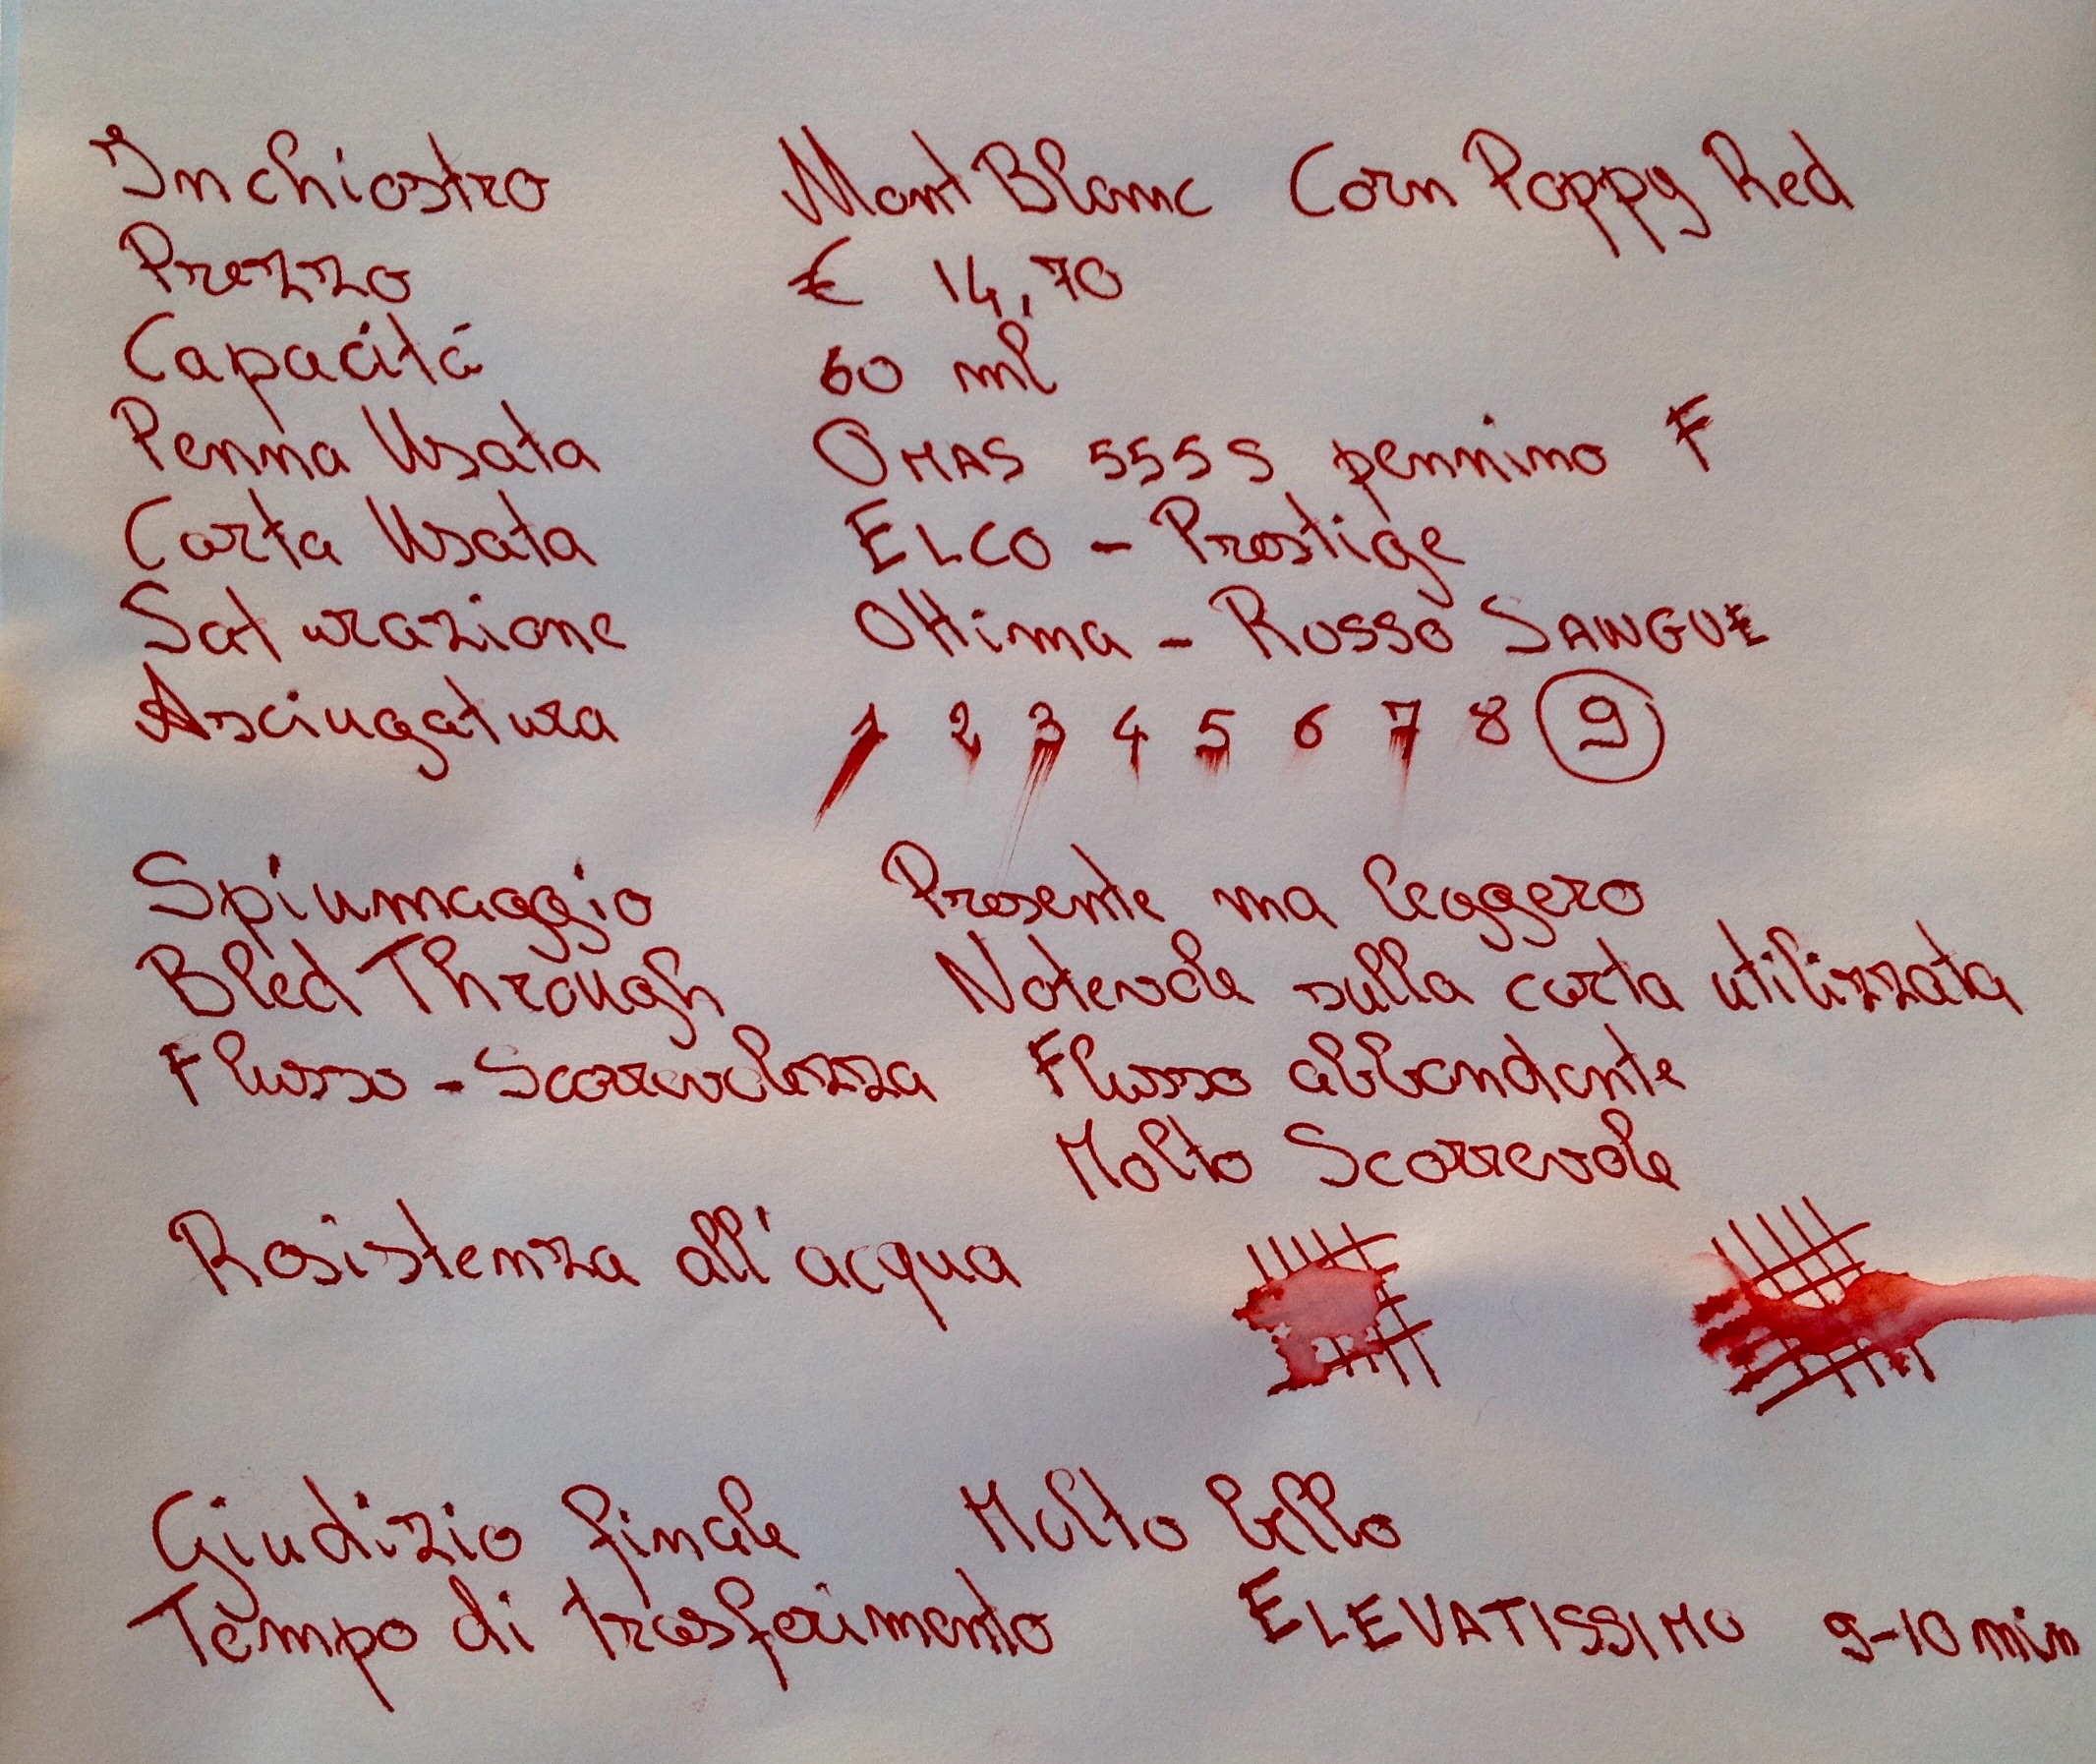 Inchiostro MontBlanc Corn Poppy Red
Prezzo € 14,70
Capacitá 60 ml
Penna Usata OMAS 555 S pennino F
Carta Usata ELCO - Prestige
Saturazione Ottima - Rosso SANGUE
Asciugatura 1 2 3 4 5 6 7 8 9
Spiumaggio Presente ma leggero
Bled Through Notevole sulla carta utilizzata
Flusso - Scorrevolezza Flusso abbondante
Molto Scorrevole
Resistenza all'acqua
Giudizio finale Molto bello
Tempo di trasferimento ELEVATISSIMO 9-10 min